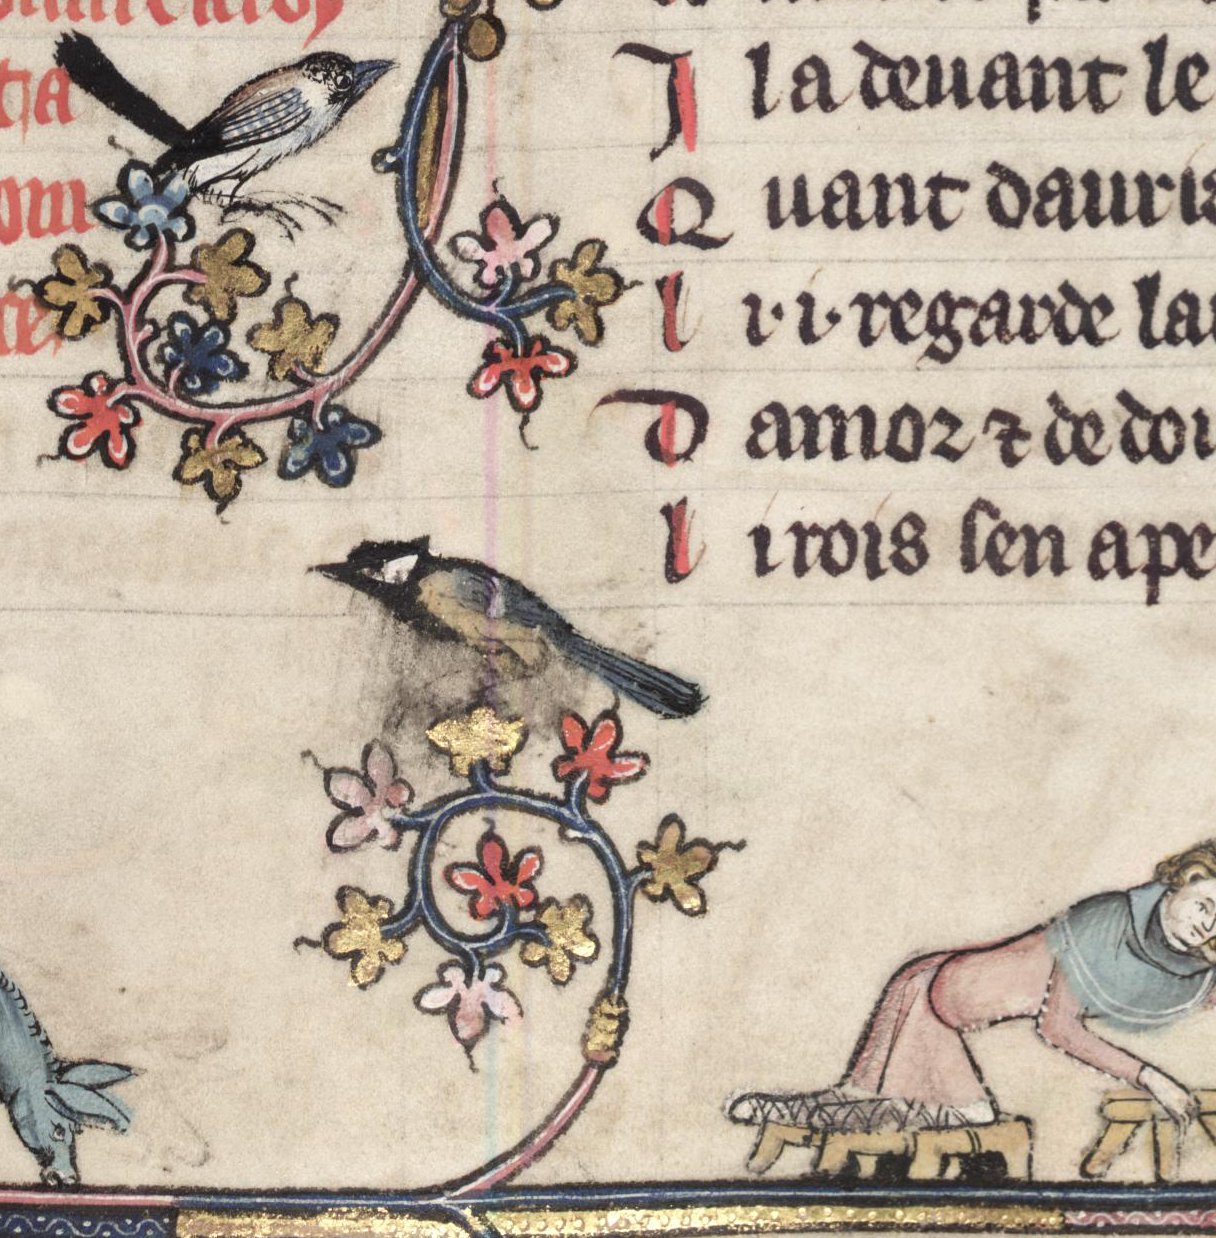 ta
om
ce
I la deuant le
Q uant dauris
l i·i·regarde lai
D amor ⁊ de dou
l i rois sen ape